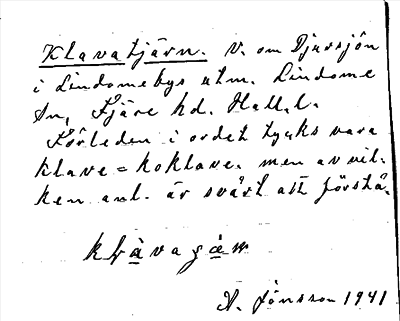 Klavatjärn. V. om Djursjön
i Lindomebys utm. Lindome
sn, Fjäre hd. Hall. l.
Förleden i ordet tycks vara
klave = koklave. men av vil-
ken anl. är svårt att förstå.
A. Jönsson 1941